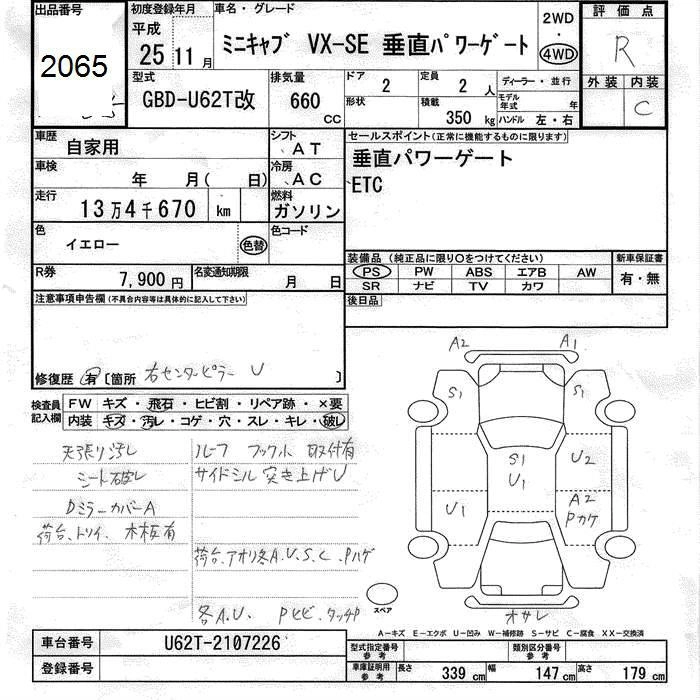 出品番号 初度登録年月 車名・グレード 評価点
2065 平成 25 11月 ミニキャブ VX-SE 垂直パワーゲート 2WD 4WD R
型式 排気量 ドア 2 定員 2人 ディーラー・並行 外装 内装
GBD-U62T改 660 CC 形状 積載 350kg モデル年式 年 ハンドル 左・右 C
車歴 自家用 シフト AT セールスポイント(正常に機能するものに限ります)
車検 年 月( 日) 冷房 AC 垂直パワーゲート
走行 13万4千670 km 燃料 ガソリン ETC
色 イエロー 色替 色コード
装備品(純正品に限り〇をつけてください) 新車保証書
R券 7,900円 名変通知期限 月 日 PS PW ABS エアB AW 有・無
SR ナビ TV カワ
注意事項申告欄(不具合内容等は具体的に記入して下さい) 後日品
修復歴 有 [箇所 右センターピラー U ]
検査員記入欄 FW キズ・飛石・ヒビ割・リペア跡・×要
内装 キズ・汚レ・コゲ・穴・スレ・キレ・破レ
天張り汚レ ルーフ フックホ 取付有
シート破レ サイドシル 突き上げU
Dミラーカバー A
荷台、トリイ、木板有
荷台、アオリ各A.U.S.C、Pハゲ
各A.U. Pヒビ、タッチP
A2 A1
S1 S1
S1 U2
U1
U1 A2
Pカケ
スペア オサレ
A-キズ E-エクボ U-凹み W-補修跡 S-サビ C-腐食 XX-交換済
車台番号 U62T-2107226 型式指定番号 参考 類別区分番号 参考
登録番号 車庫証明用 参考 長さ 339cm 幅 147cm 高さ 179cm